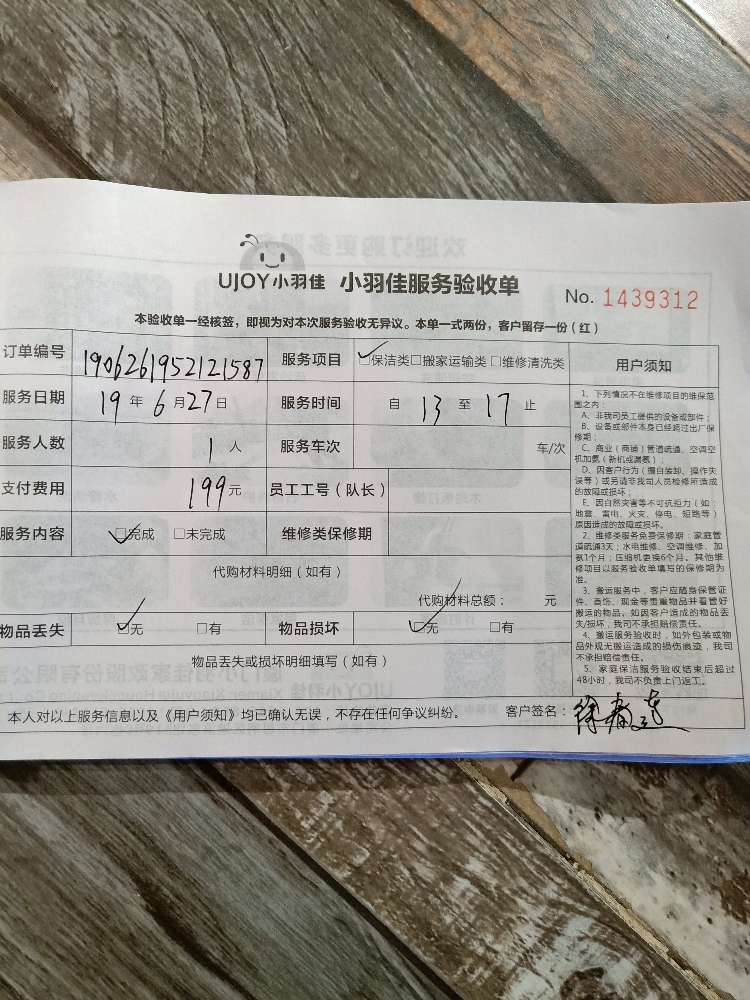 UJOY小羽佳 小羽佳服务验收单 No. 1439312
本验收单一经核签，即视为对本次服务验收无异议。本单一式两份，客户留存一份（红）
订单编号 190626195212158​7 服务项目 □保洁类□搬家运输类□维修清洗类
服务日期 19年6月27日 服务时间 自 13 至 17 止
服务人数 1 人 服务车次 车/次
支付费用 199元 员工工号（队长）
服务内容 □完成 □未完成 维修类保修期
代购材料明细（如有）
代购材料总额： 元
物品丢失 □无 □有 物品损坏 □无 □有
物品丢失或损坏明细填写（如有）
本人对以上服务信息以及《用户须知》均已确认无误，不存在任何争议纠纷。 客户签名：
用户须知
1、下列情况不在维修项目的维保范
围之内：
A、非我司员工提供的设备或部件；
B、设备或部件本身已经超过出厂保
修期；
C、商业（商铺）管道疏通、空调空
机加氨（新机或漏氨）；
D、因客户行为（擅自装卸、操作失
误等）或另请非我司人员检修所造成
的故障或损坏；
E、因自然灾害等不可抗拒力（如：
地震、雷电、火灾、停电、短路等）
原因造成的故障或损坏。
2、维修类服务免费保修期：家庭管
道疏通3天；水电维修、空调维修、加
氨1个月；压缩机更换6个月。其他维
修项目以服务验收单填写的保修期为
准。
3、搬运服务中，客户应随身保管证
件、首饰、现金等贵重物品并看管好
搬运的物品。如因客户造成的物品丢
失/损坏，我司不承担赔偿责任。
4、搬运服务验收时，如外包装或物
品外观无搬运造成的损伤痕迹，我司
不承担赔偿责任。
5、家庭保洁服务验收结束后超过
48小时，我司不负责上门返工。